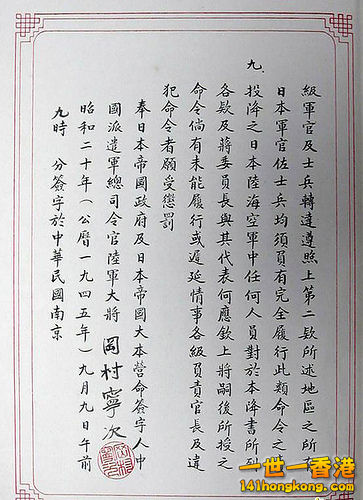 級軍官及士兵轉達遵照上第二欵所述地區之所
日本軍官佐士兵均須負有完全履行此類命令之
九、投降之日本陸海空軍中任何人員對於本降書所列
各欵及蔣委員長與其代表何應欽上將嗣後所授之
命令倘有未能履行或遲延情事各級負責官長及違
犯命令者願受懲罰
奉日本帝國政府及日本帝國大本營命簽字人中
國派遣軍總司令官陸軍大將 岡村寧次
昭和二十年(公曆一九四五年)九月九日午前
九時 分簽字於中華民國南京
一世一香港
141hongkong.com